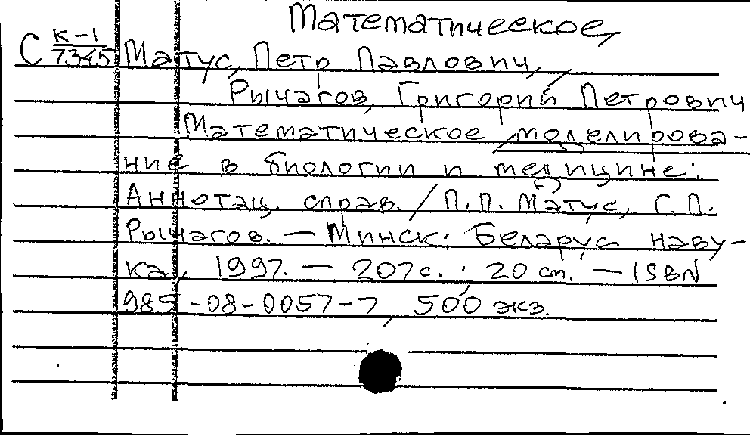 Математическое,
С К-1
7345 Матус, Петр Павлович,
Рычагов, Григорий Петрович
Математическое моделирова-
ние в биологии и медицине:
Аннотац. справ. / П.П. Матус, Г.П.
Рычагов. — Минск: Беларус. наву-
ка, 1997. — 207 с.; 20 см. — ISBN
985-08-0057-7, 500 экз.